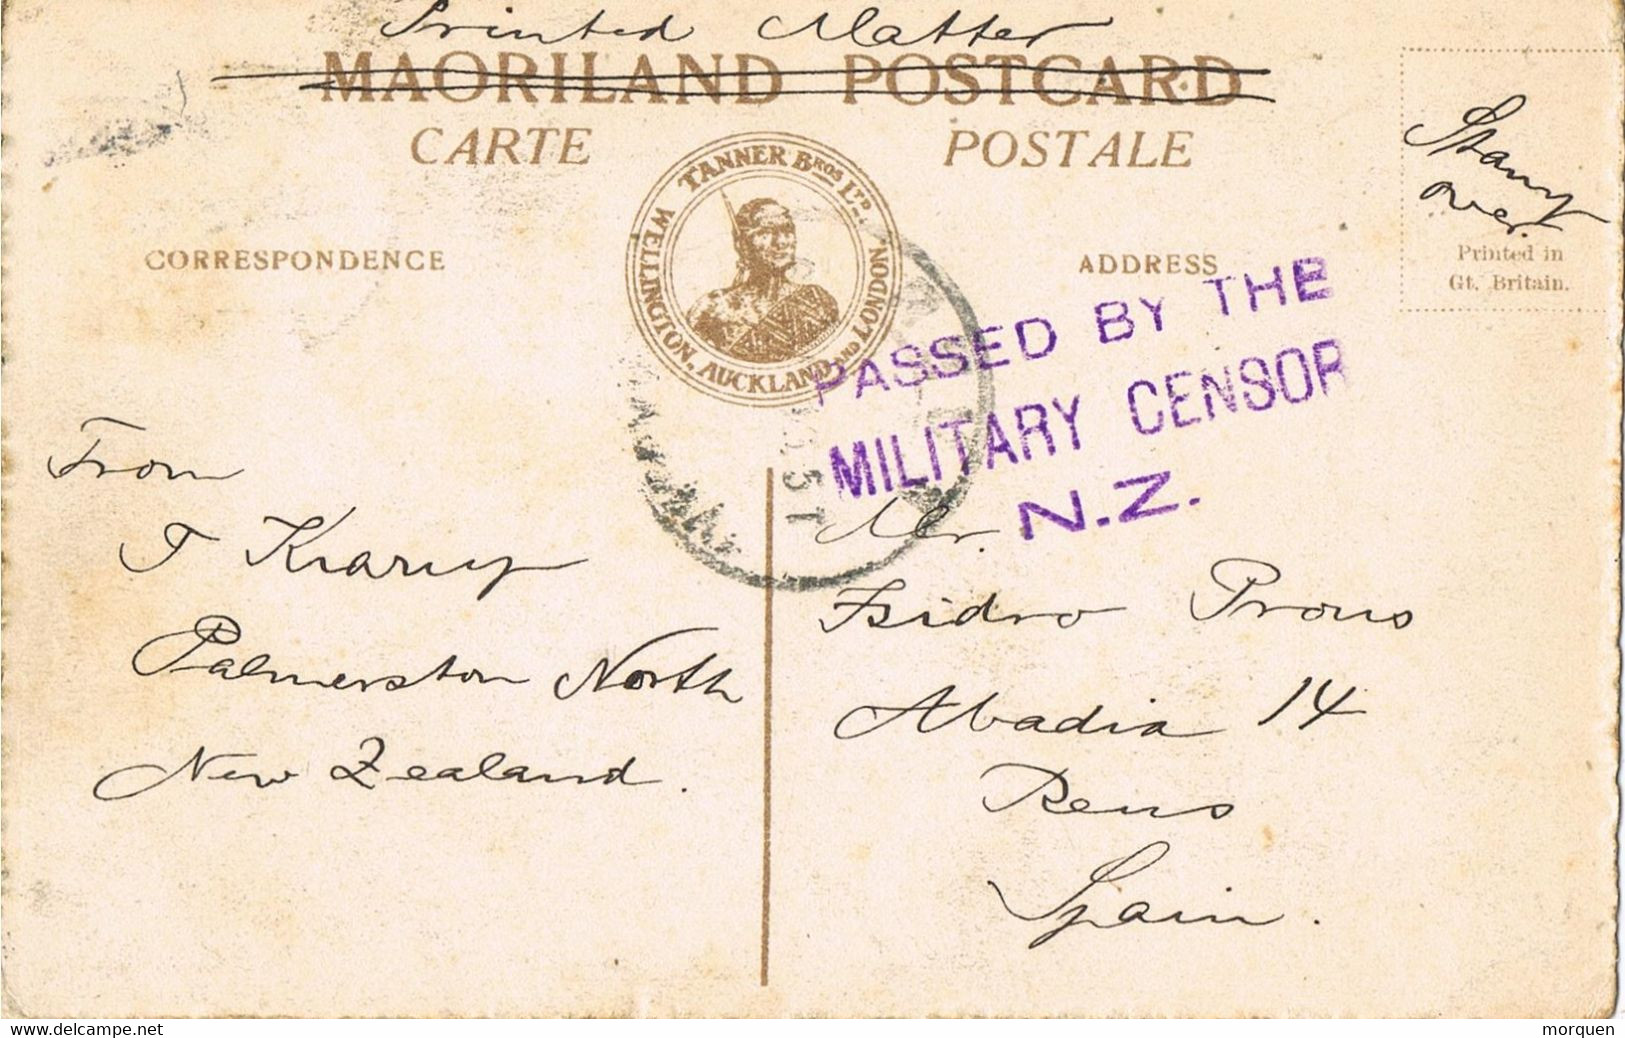 Printed Matter
MAORILAND POSTCARD
CARTE POSTALE
TANNER BROS LTD
WELLINGTON, AUCKLAND AND LONDON
Stamp
over.
Printed in
Gt. Britain.
CORRESPONDENCE
ADDRESS
PASSED BY THE
MILITARY CENSOR
N.Z.
From
T Krarup
Palmerston North
New Zealand.
Mr.
Isidro Prous
Abadia 14
Reus
Spain.
delcampe.net
morquen